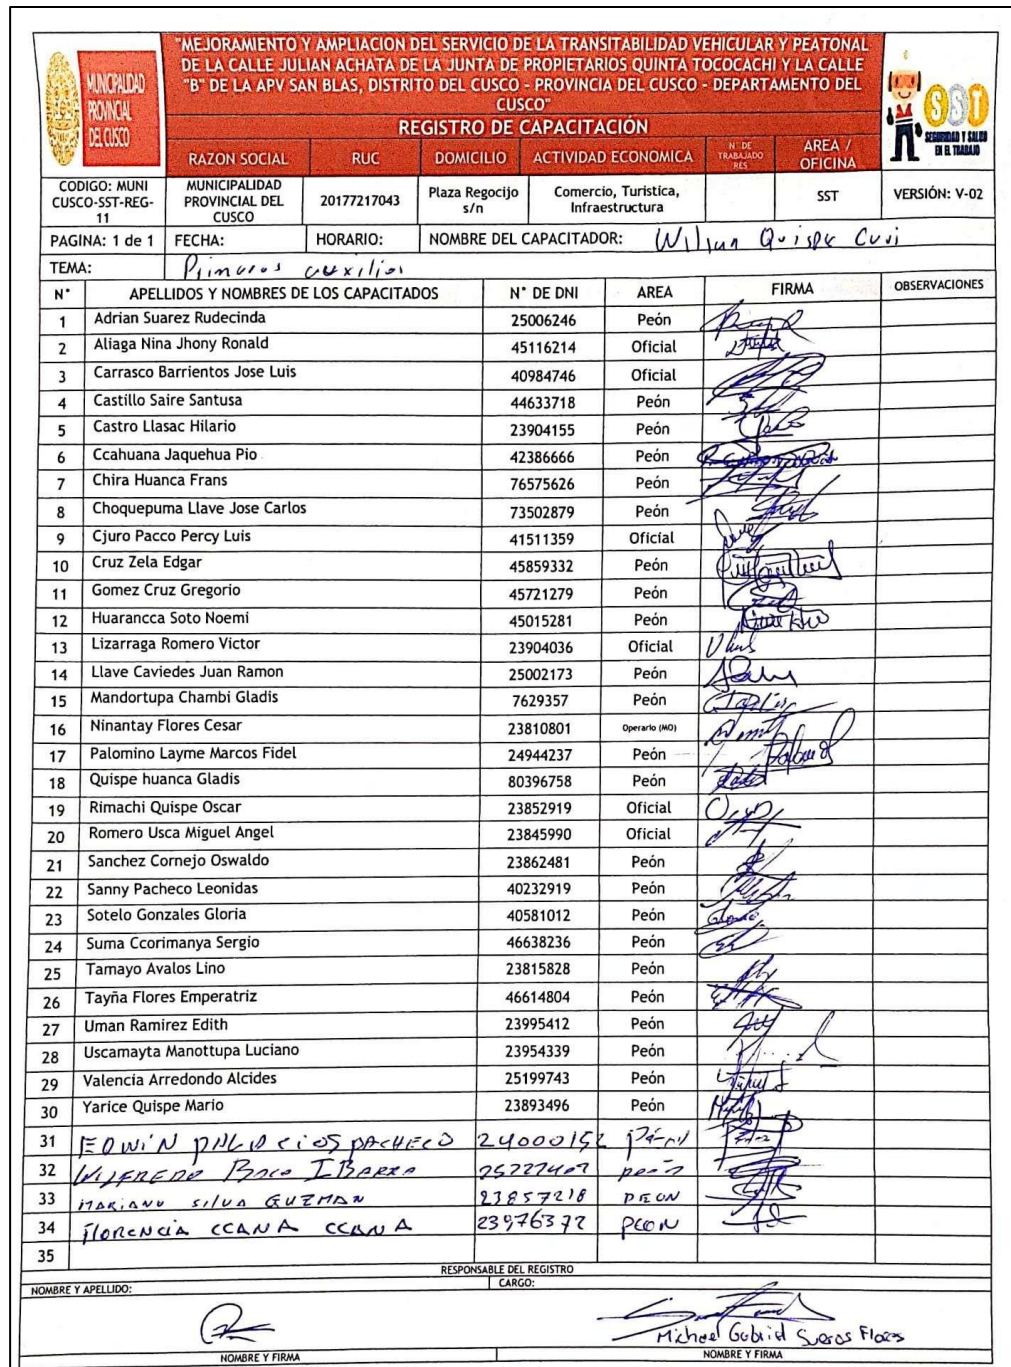 MUNICIPALIDAD
PROVINCIAL
DEL CUSCO
"MEJORAMIENTO Y AMPLIACION DEL SERVICIO DE LA TRANSITABILIDAD VEHICULAR Y PEATONAL
DE LA CALLE JULIAN ACHATA DE LA JUNTA DE PROPIETARIOS QUINTA TOCOCACHI Y LA CALLE
"B" DE LA APV SAN BLAS, DISTRITO DEL CUSCO - PROVINCIA DEL CUSCO - DEPARTAMENTO DEL
CUSCO"
REGISTRO DE CAPACITACIÓN
SST
SEGURIDAD Y SALUD
EN EL TRABAJO
RAZON SOCIAL RUC DOMICILIO ACTIVIDAD ECONOMICA N° DE TRABAJADORES AREA / OFICINA
CODIGO: MUNI CUSCO-SST-REG-11 MUNICIPALIDAD PROVINCIAL DEL CUSCO 20177217043 Plaza Regocijo s/n Comercio, Turistica, Infraestructura SST VERSIÓN: V-02
PAGINA: 1 de 1 FECHA: HORARIO: NOMBRE DEL CAPACITADOR: Wilian Quispe Cusi
TEMA: Primeros auxilios
N° APELLIDOS Y NOMBRES DE LOS CAPACITADOS N° DE DNI AREA FIRMA OBSERVACIONES
1 Adrian Suarez Rudecinda 25006246 Peón
2 Aliaga Nina Jhony Ronald 45116214 Oficial
3 Carrasco Barrientos Jose Luis 40984746 Oficial
4 Castillo Saire Santusa 44633718 Peón
5 Castro Llasac Hilario 23904155 Peón
6 Ccahuana Jaquehua Pio 42386666 Peón
7 Chira Huanca Frans 76575626 Peón
8 Choquepuma Llave Jose Carlos 73502879 Peón
9 Cjuro Pacco Percy Luis 41511359 Oficial
10 Cruz Zela Edgar 45859332 Peón
11 Gomez Cruz Gregorio 45721279 Peón
12 Huarancca Soto Noemi 45015281 Peón
13 Lizarraga Romero Victor 23904036 Oficial
14 Llave Caviedes Juan Ramon 25002173 Peón
15 Mandortupa Chambi Gladis 7629357 Peón
16 Ninantay Flores Cesar 23810801 Operario (MO)
17 Palomino Layme Marcos Fidel 24944237 Peón
18 Quispe huanca Gladis 80396758 Peón
19 Rimachi Quispe Oscar 23852919 Oficial
20 Romero Usca Miguel Angel 23845990 Oficial
21 Sanchez Cornejo Oswaldo 23862481 Peón
22 Sanny Pacheco Leonidas 40232919 Peón
23 Sotelo Gonzales Gloria 40581012 Peón
24 Suma Ccorimanya Sergio 46638236 Peón
25 Tamayo Avalos Lino 23815828 Peón
26 Tayña Flores Emperatriz 46614804 Peón
27 Uman Ramirez Edith 23995412 Peón
28 Uscamayta Manottupa Luciano 23954339 Peón
29 Valencia Arredondo Alcides 25199743 Peón
30 Yarice Quispe Mario 23893496 Peón
31 EDWIN PALACIOS PACHECO 24000152 Peón
32 WILFREDO IBARRA peón
33 MARIANO SILVA GUZMAN 23857218 PEON
34 FLORENCIA CCANA CCANA 23976372 PEON
35
RESPONSABLE DEL REGISTRO
NOMBRE Y APELLIDO: CARGO:
Michael Gabriel Flores
NOMBRE Y FIRMA NOMBRE Y FIRMA